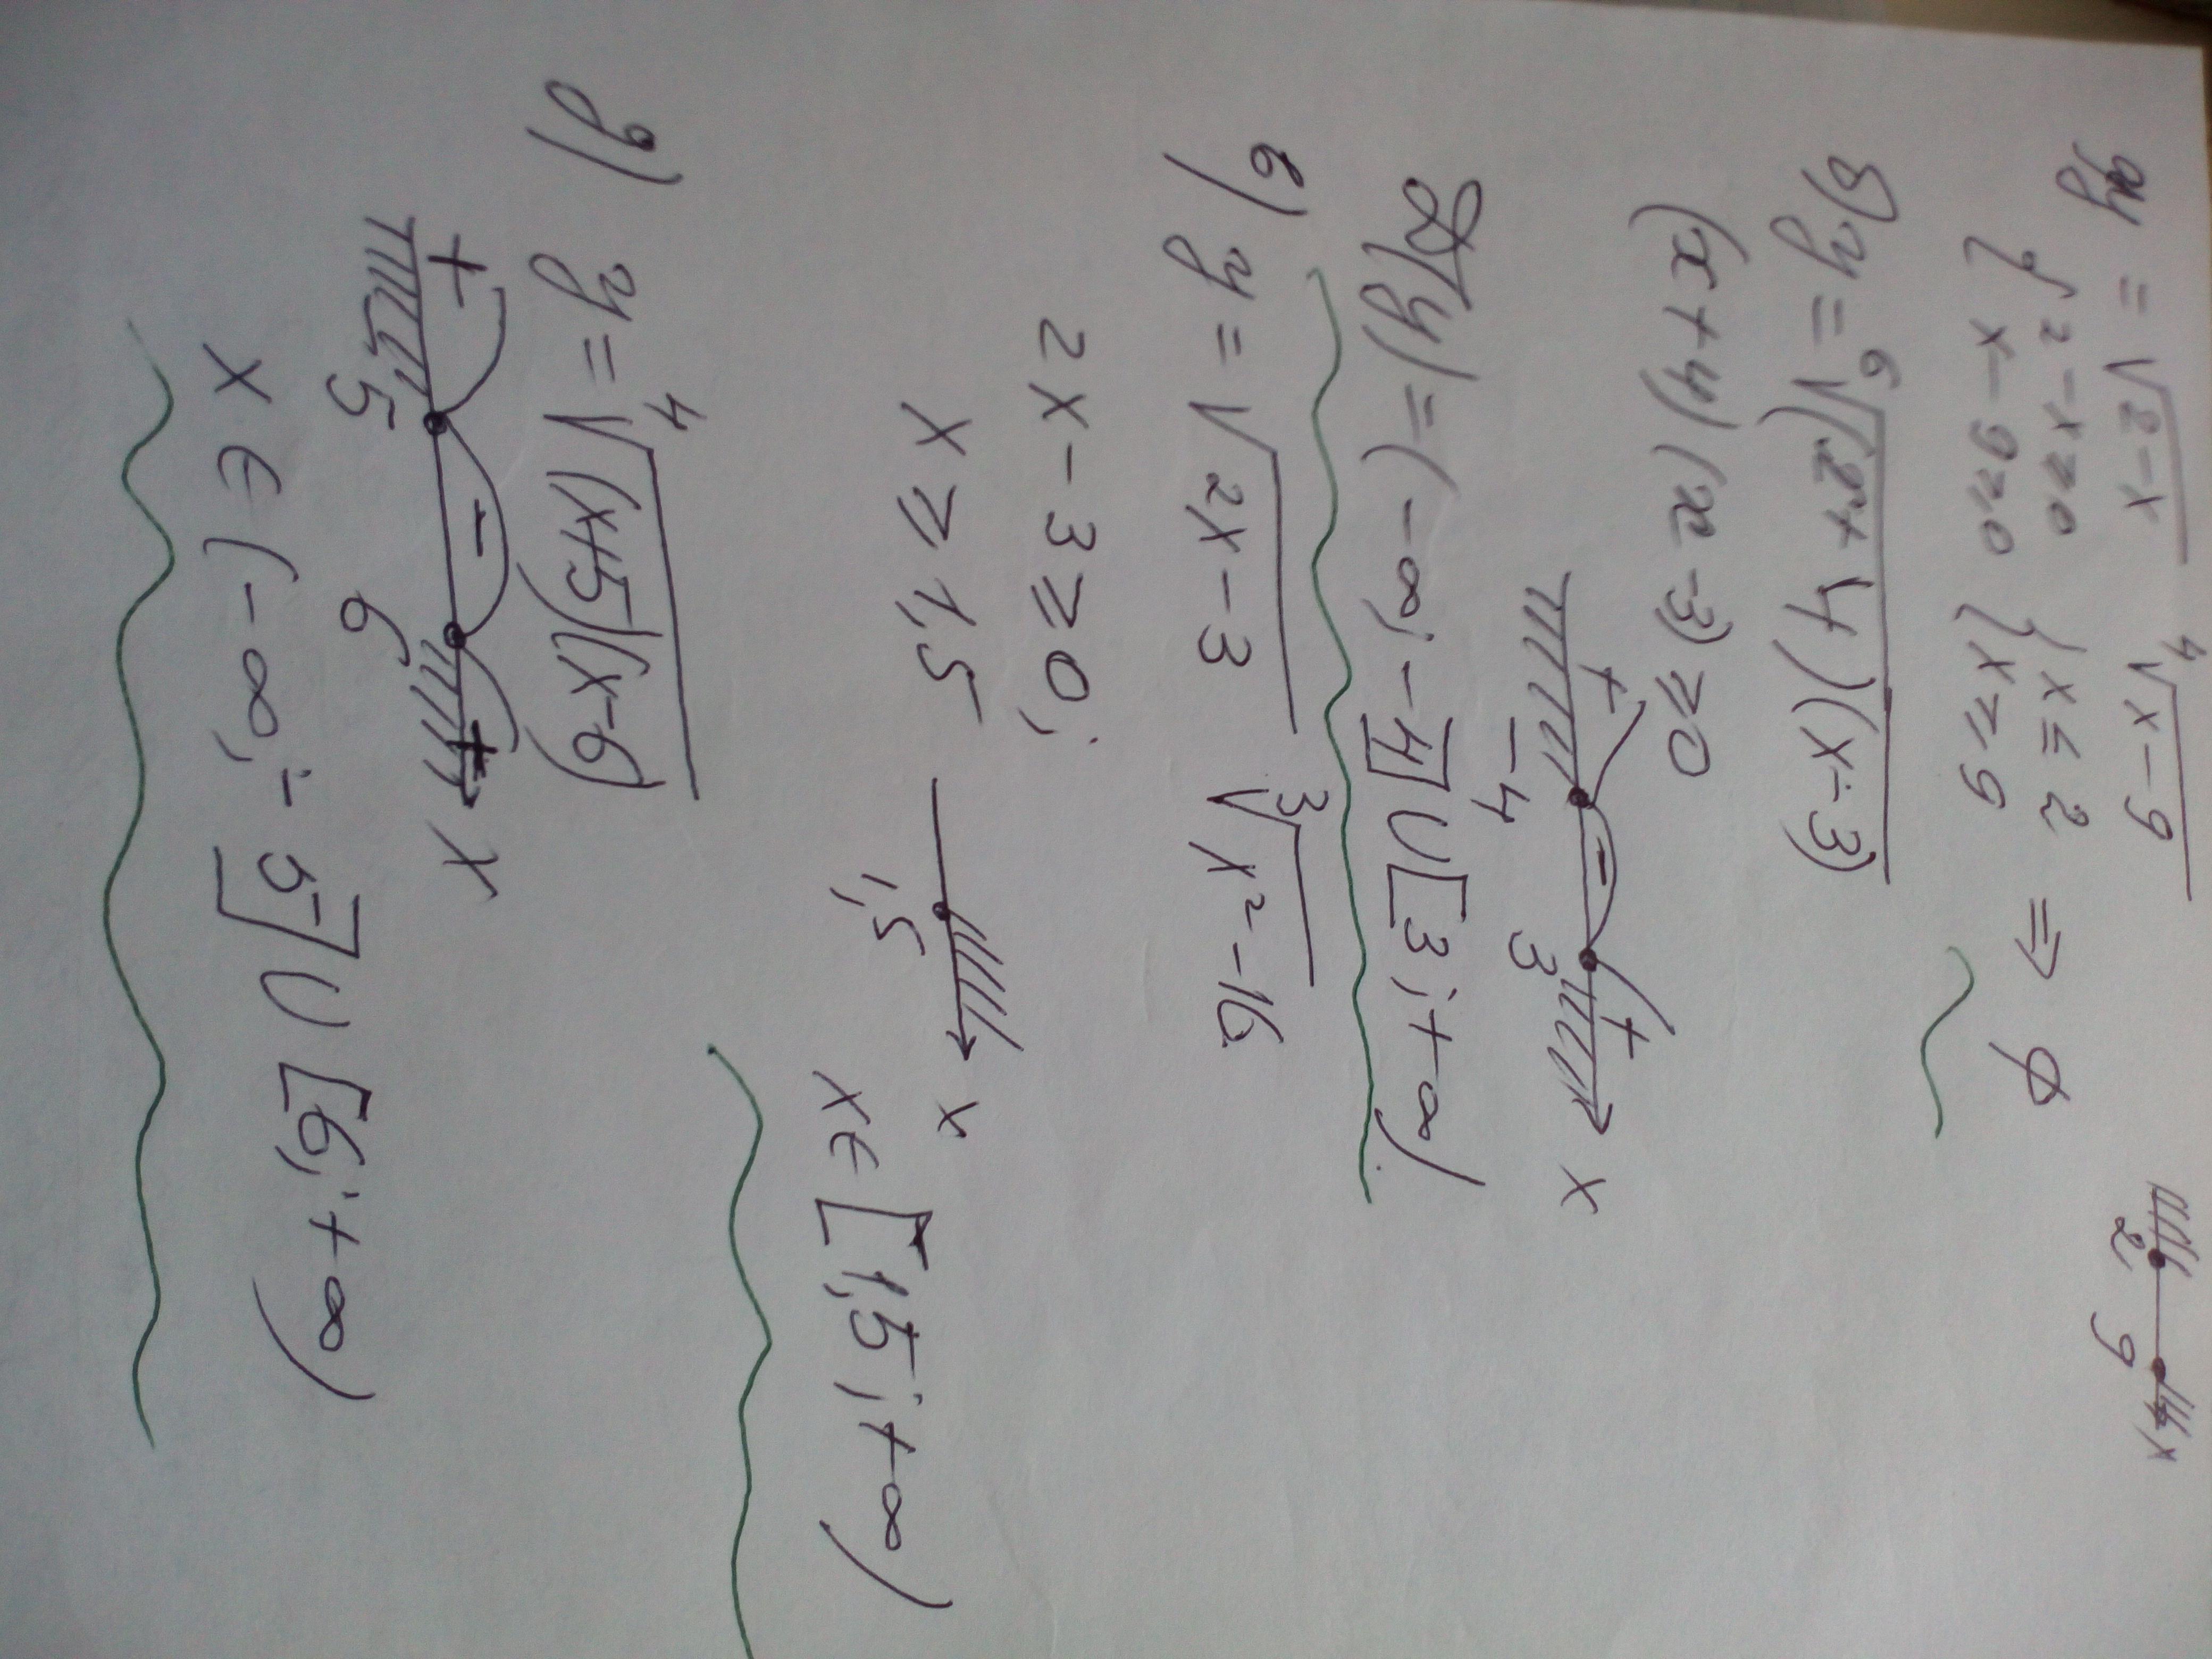 а) y = √2-x ⁴√x-9
{ 2-x≥0 { x ≤ 2 ⇒ ∅
x-9≥0 x ≥ 9
2 9 x
б) y = ⁶√(x+4)(x-3)
(x+4)(x-3) ≥ 0
+ - +
-4 3 x
D(y) = (-∞; -4] ∪ [3; +∞)
в) y = √2x-3 ³√x²-16
2x-3 ≥ 0;
x ≥ 1,5
1,5 x
x ∈ [1,5; +∞)
г) y = ⁴√(x+5)(x-6)
+ - +
5 6 x
x ∈ (-∞; -5] ∪ [6; +∞)